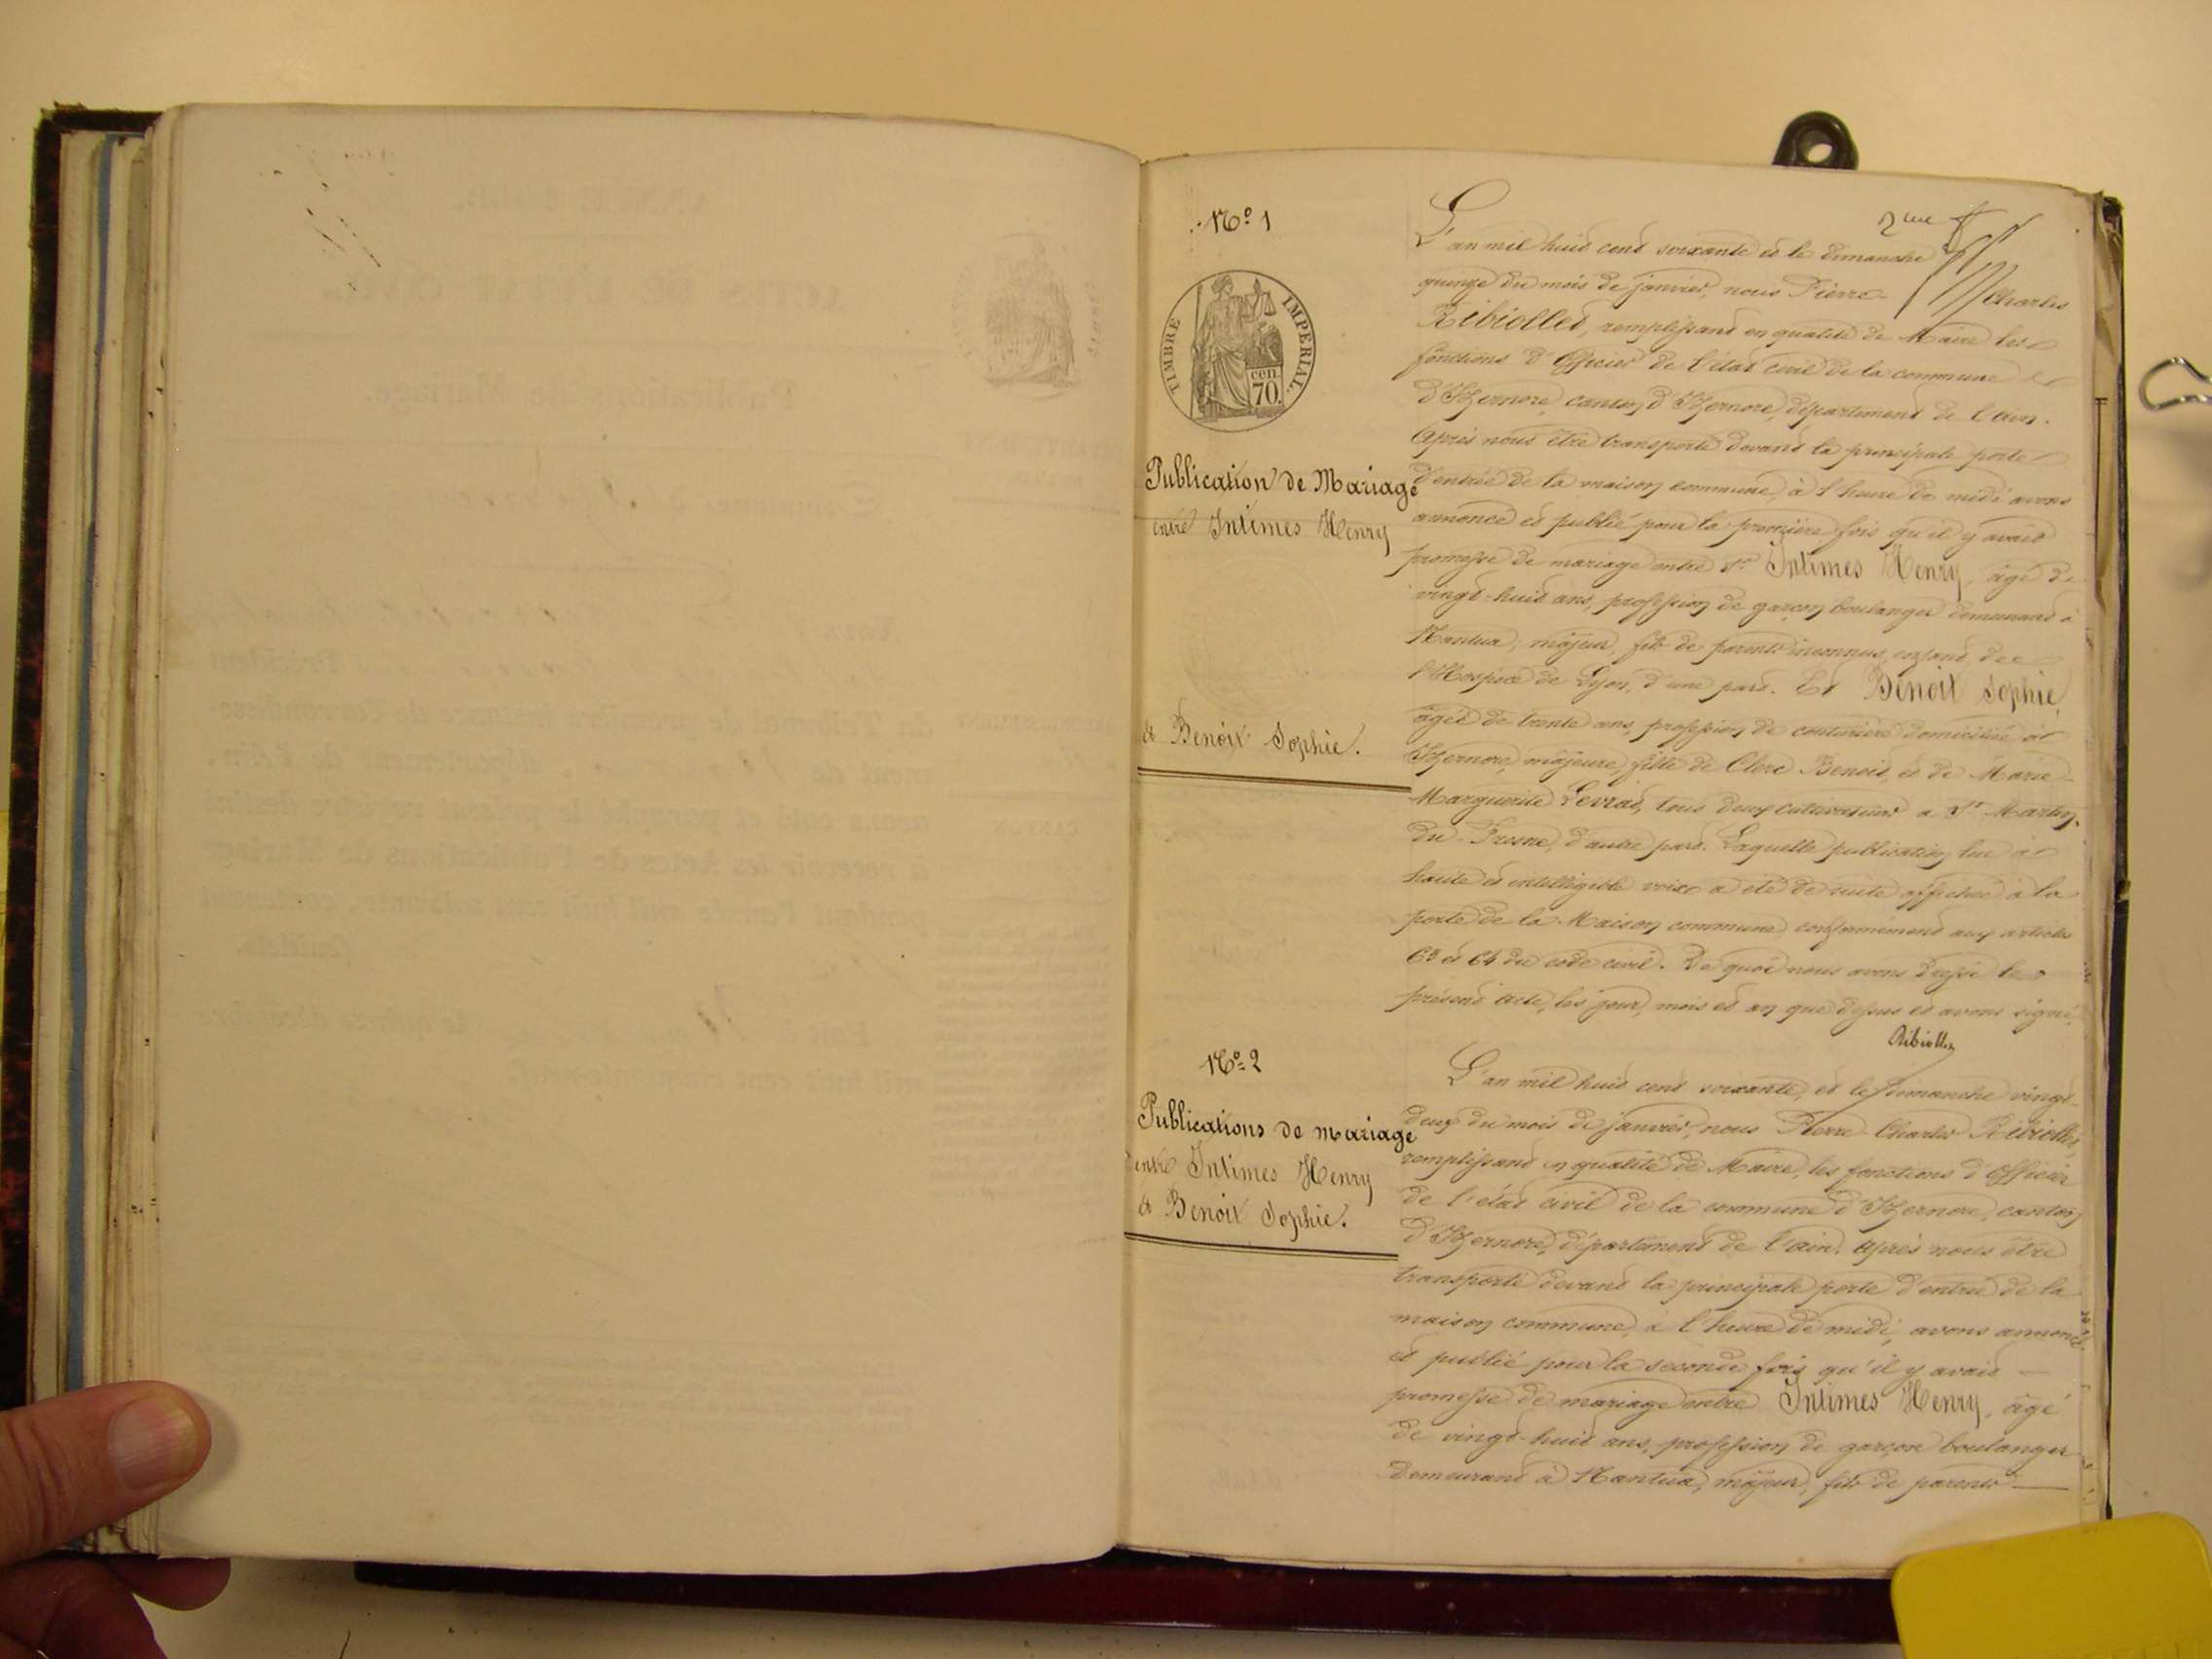 2me f
No 1
TIMBRE IMPERIAL.
cen.
70.
Publication de Mariage
entre Intimes Henry
et Benoit Sophie.
L'an mil huit cent soixante et le dimanche
quinze du mois de janvier, nous Pierre Charles
Ribiollet, remplissant en qualité de Maire les
fonctions d'Officier de l'état civil de la commune
d'Izernore, canton d'Izernore, département de l'ain.
Après nous être transporté devant la principale porte
d'entrée de la maison commune, à l'heure de midi avons
annoncé et publié pour la première fois qu'il y avait
promesse de mariage entre Sr Intimes Henry, âgé de
vingt-huit ans, profession de garçon boulanger demeurant à
Nantua, majeur, fils de parents inconnus, enfant de
l'Hospice de Lyon, d'une part. Et Benoit Sophie,
âgée de trente ans, profession de couturière domiciliée à
Izernore, majeure, fille de Clerc Benoit, et de Marie
Marguerite Levrat, tous deux cultivateurs a St Martin
du Fresne, d'autre part. Laquelle publication lue à
haute et intelligible voix a été de suite affichée à la
porte de la Maison commune conformément aux articles
63 et 64 du code civil. De quoi nous avons dressé le
présent acte, les jour, mois et an que dessus et avons signé.
Ribiollet
No 2
Publications de mariage
entre Intimes Henry
et Benoit Sophie.
L'an mil huit cent soixante, et le dimanche vingt-
deux du mois de janvier, nous Pierre Charles Ribiollet,
remplissant en qualité de Maire, les fonctions d'Officier
de l'état civil de la commune d'Izernore, canton
d'Izernore, département de l'ain. Après nous être
transporté devant la principale porte d'entrée de la
maison commune, à l'heure de midi, avons annoncé
et publié pour la seconde fois qu'il y avait
promesse de mariage entre Intimes Henry, âgé
de vingt-huit ans, profession de garçon boulanger
demeurant à Nantua, majeur, fils de parents